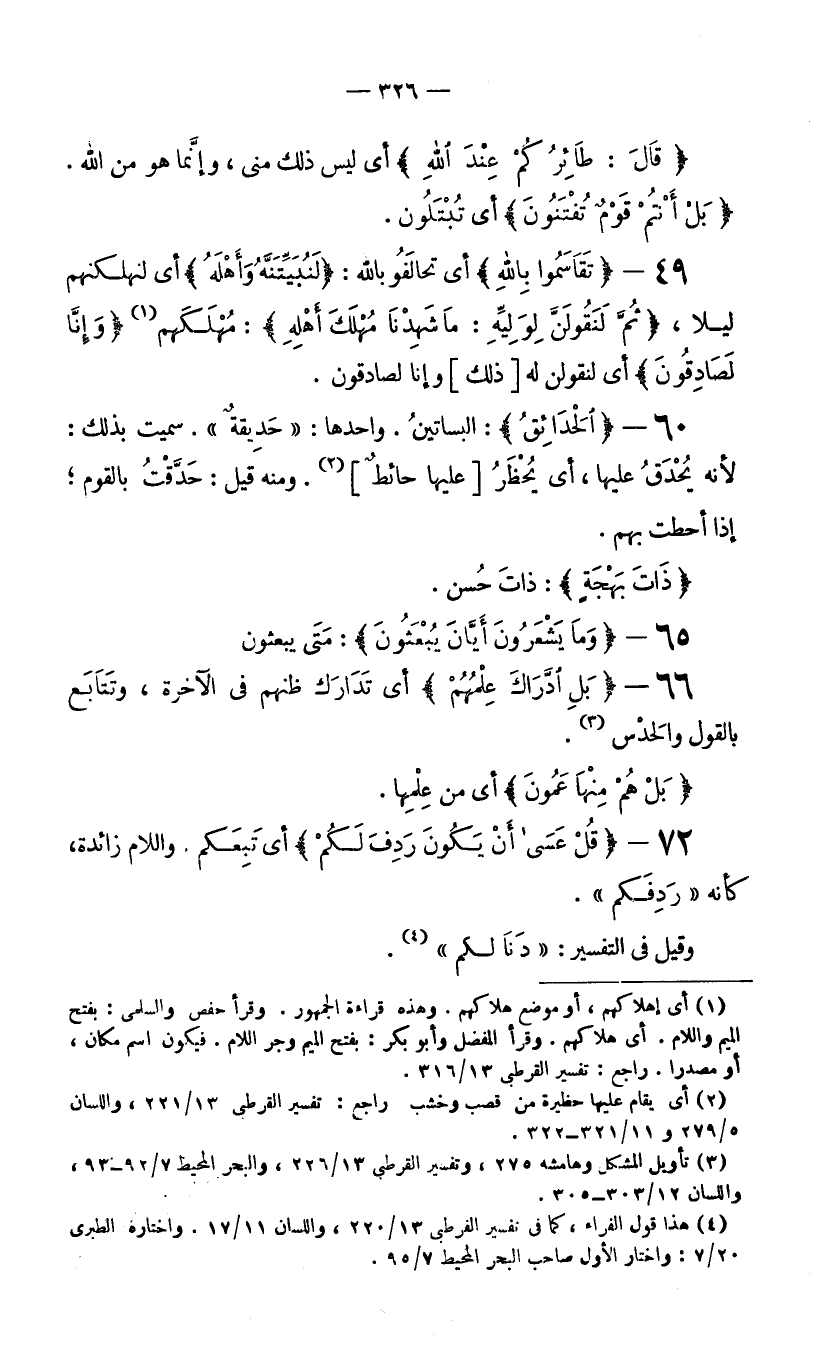 — ٣٢٦ —
﴿ قَالَ : طَائِرُكُمْ عِنْدَ ٱللهِ ﴾ أى ليس ذلك منى ، وإنَّما هو من الله .
﴿ بَلْ أَنْتُمْ قَوْمٌ تُفْتَنُونَ ﴾ أى تُبْتَلُون .
٤٩ — ﴿ تَقَاسَمُوا بِاللهِ ﴾ أى تحالَفُو بالله : ﴿ لَنُبَيِّتَنَّهُ وَأَهْلَهُ ﴾ أى لنهلكنهم
ليلا ، ﴿ ثُمَّ لَنَقُولَنَّ لِوَلِيِّهِ : مَا شَهِدْنَا مُهْلَكَ أَهْلِهِ ﴾ : مُهْلَكَهم (١) ﴿ وَإِنَّا
لَصَادِقُونَ ﴾ أى لنقولن له [ ذلك ] وإنا لصادقون .
٦٠ — ﴿ ٱلْحَدَائِقُ ﴾ : البساتينُ . واحدها : « حَدِيقةٌ » . سميت بذلك :
لأنه يُحْدَقُ عليها ، أى يُحْظَرُ [ عليها حائطٌ ] (٢) . ومنه قيل : حَدَّقْتُ بالقوم ؛
إذا أحطت بهم .
﴿ ذَاتَ بَهْجَةٍ ﴾ : ذاتَ حُسن .
٦٥ — ﴿ وَمَا يَشْعَرُونَ أَيَّانَ يُبْعَثُونَ ﴾ : مَتَى يبعثون
٦٦ — ﴿ بَلِ ٱدَّرَاكَ عِلْمُهُمْ ﴾ أى تَدَارَك ظنهم فى الآخرة ، وتَتَابَع
بالقول والحَدْس (٣) .
﴿ بَلْ هُمْ مِنْهَا عَمُونَ ﴾ أى من عِلْمِها .
٧٢ — ﴿ قُلْ عَسَى أَنْ يَكُونَ رَدِفَ لَكُمْ ﴾ أى تَبِعَكم . واللام زائدة،
كأنه « رَدِفَكم » .
وقيل فى التفسير : « دَنَا لكم » (٤) .
(١) أى إهلاكهم ، أو موضع هلاكهم . وهذه قراءة الجمهور . وقرأ حفص والسلمى : بفتح
الميم واللام . أى هلاكهم . وقرأ المفضل وأبو بكر : بفتح الميم وجر اللام . فيكون اسم مكان ،
أو مصدرا . راجع : تفسير القرطى ١٣/‏٣١٦ .
(٢) أى يقام عليها حظيرة من قصب وخشب راجع : تفسير القرطبى ١٣/‏٢٢١ ، واللسان
٥/‏٢٧٩ و ١١/‏٣٢١–٣٢٢ .
(٣) تأويل المشكل وهامشه ٢٧٥ ، وتفسير القرطبى ١٣/‏٢٢٦ ، والبحر المحيط ٧/‏٩٢–٩٣ ،
واللسان ١٢/‏٣٠٣–٣٠٥ .
(٤) هذا قول الفراء ، كما فى تفسير القرطى ١٣/‏٢٢٠ ، واللسان ١١/‏١٧ . واختاره الطبرى
٢٠/‏٧ : واختار الأول صاحب البحر المحيط ٧/‏٩٥ .